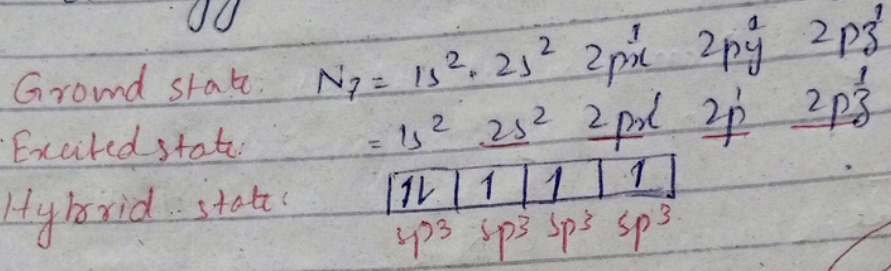 Ground state. N₇ = 1s². 2s² 2px¹ 2py¹ 2pz¹
Excited state: = 1s² 2s² 2px¹ 2p¹ 2pz¹
Hybrid state: 1l 1 1 1
sp3 sp3 sp3 sp3